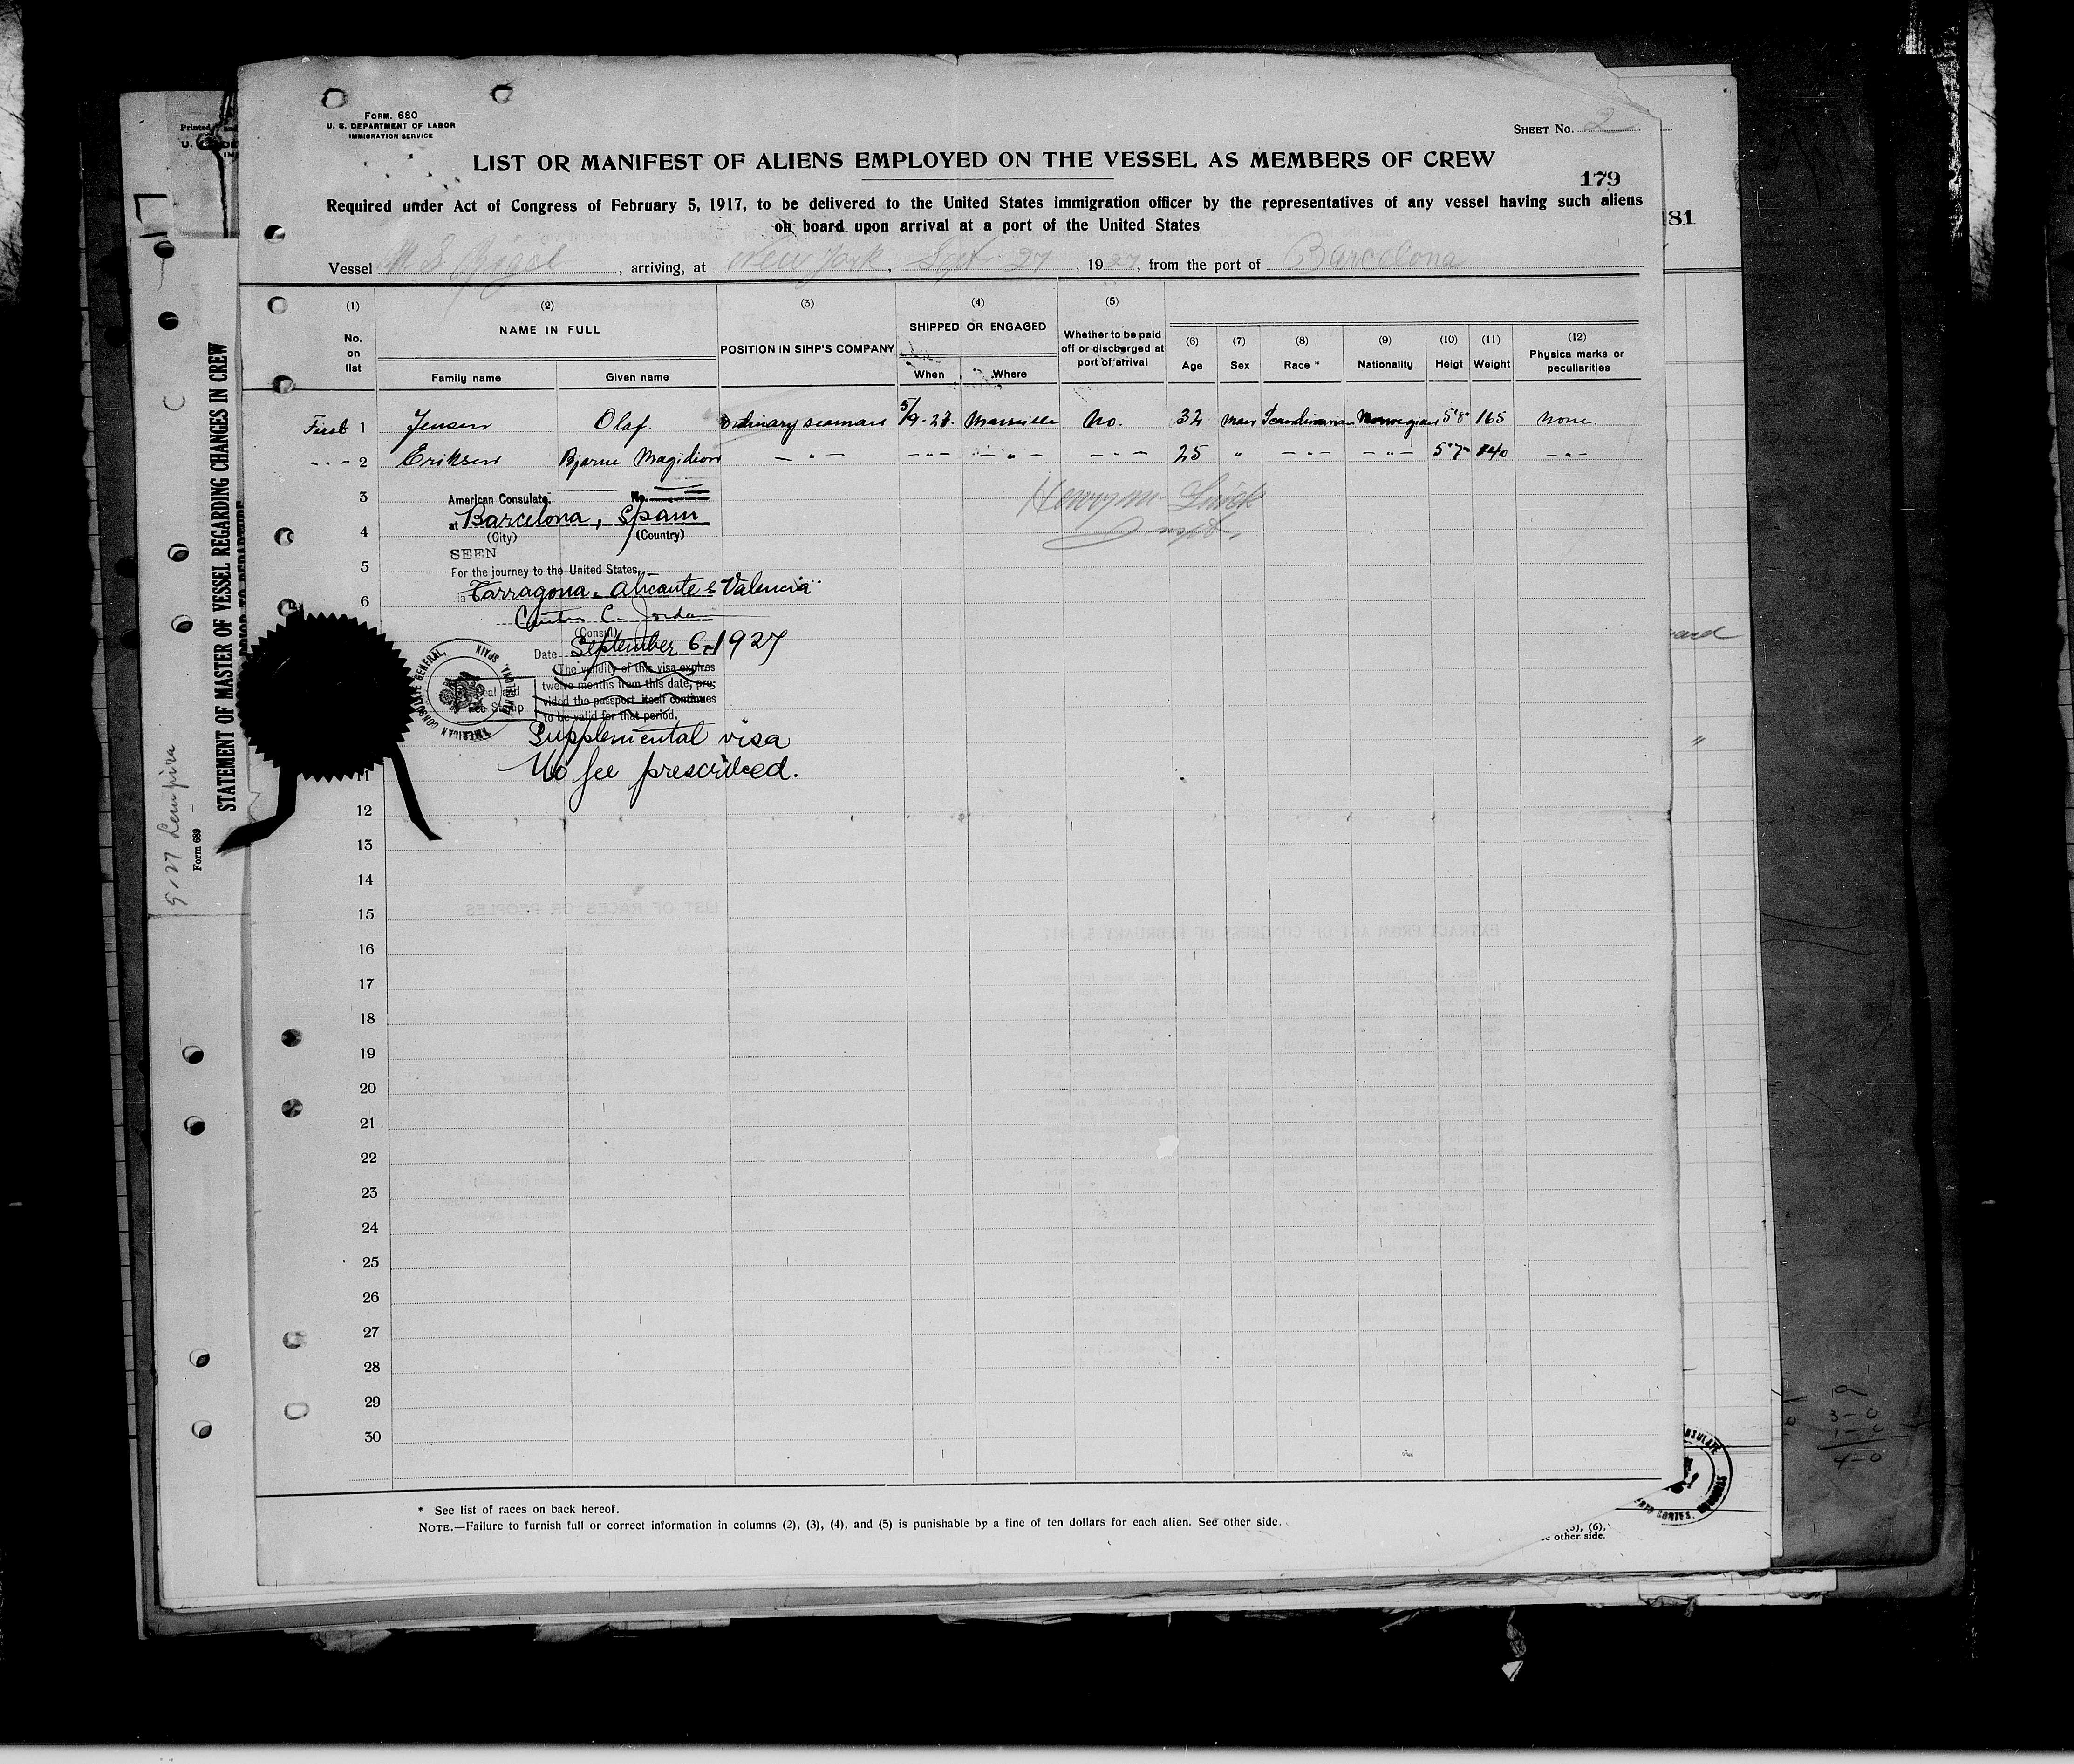 FORM. 680
U. S. DEPARTMENT OF LABOR
IMMIGRATION SERVICE
SHEET No. 2
LIST OR MANIFEST OF ALIENS EMPLOYED ON THE VESSEL AS MEMBERS OF CREW
179
Required under Act of Congress of February 5, 1917, to be delivered to the United States immigration officer by the representatives of any vessel having such aliens
on board upon arrival at a port of the United States
181
Vessel M. S. , arriving, at New York, Sept. 27, 1927, from the port of Barcelona
(1) (2) (3) (4) (5)
No. on list
NAME IN FULL
Family name Given name
POSITION IN SIHP'S COMPANY
SHIPPED OR ENGAGED
When Where
Whether to be paid off or discharged at port of arrival
(6) (7) (8) (9) (10) (11) (12)
Age Sex Race * Nationality Heigt Weight Physica marks or peculiarities
First 1 Jensen Olaf. ordinary seaman 5/9-27. Marseille No. 32 Man Scandinavian Norwegian 5'8" 165 None.
-"- 2 Eriksen Bjarne Magidion -"- -"- -"- -"- 25 " -"- -"- 5'7" 140 -"-
3
American Consulate. No.
at Barcelona, Spain
4
(City) (Country)
SEEN
5
For the journey to the United States,
in Tarragona, Alicante & Valencia
6
(Consul)
Date September 6, 1927
The validity of this visa expires
twelve months from this date, pro-
vided the passport itself continues
to be valid for that period.
AMERICAN CONSULATE GENERAL, BARCELONA, SPAIN
Supplemental visa
No fee prescribed.
11
12
13
14
15
16
17
18
19
20
21
22
23
24
25
26
27
28
29
30
* See list of races on back hereof.
NOTE.—Failure to furnish full or correct information in columns (2), (3), (4), and (5) is punishable by a fine of ten dollars for each alien. See other side.
(5), (6),
other side.
STATEMENT OF MASTER OF VESSEL REGARDING CHANGES IN CREW
PRIOR TO DEPARTURE
Form 689
LIST OF RACES OR PEOPLES
EXTRACT FROM ACT OF CONGRESS OF FEBRUARY 5, 1917